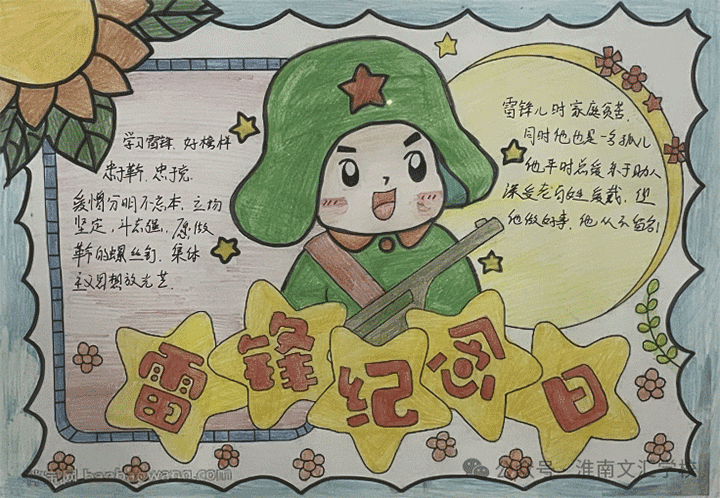 学习雷锋,好榜样
忠于革命,忠于党.
爱憎分明不忘本,立场
坚定,斗志强,愿做
革命的螺丝钉,集体
主义思想放光芒.
雷锋儿时家庭贫苦,
同时他也是一名孤儿
他平时总爱乐于助人
深受老百姓爱戴,但
他做好事,他从不留名!
雷锋纪念日
公众号·淮南文汇学校